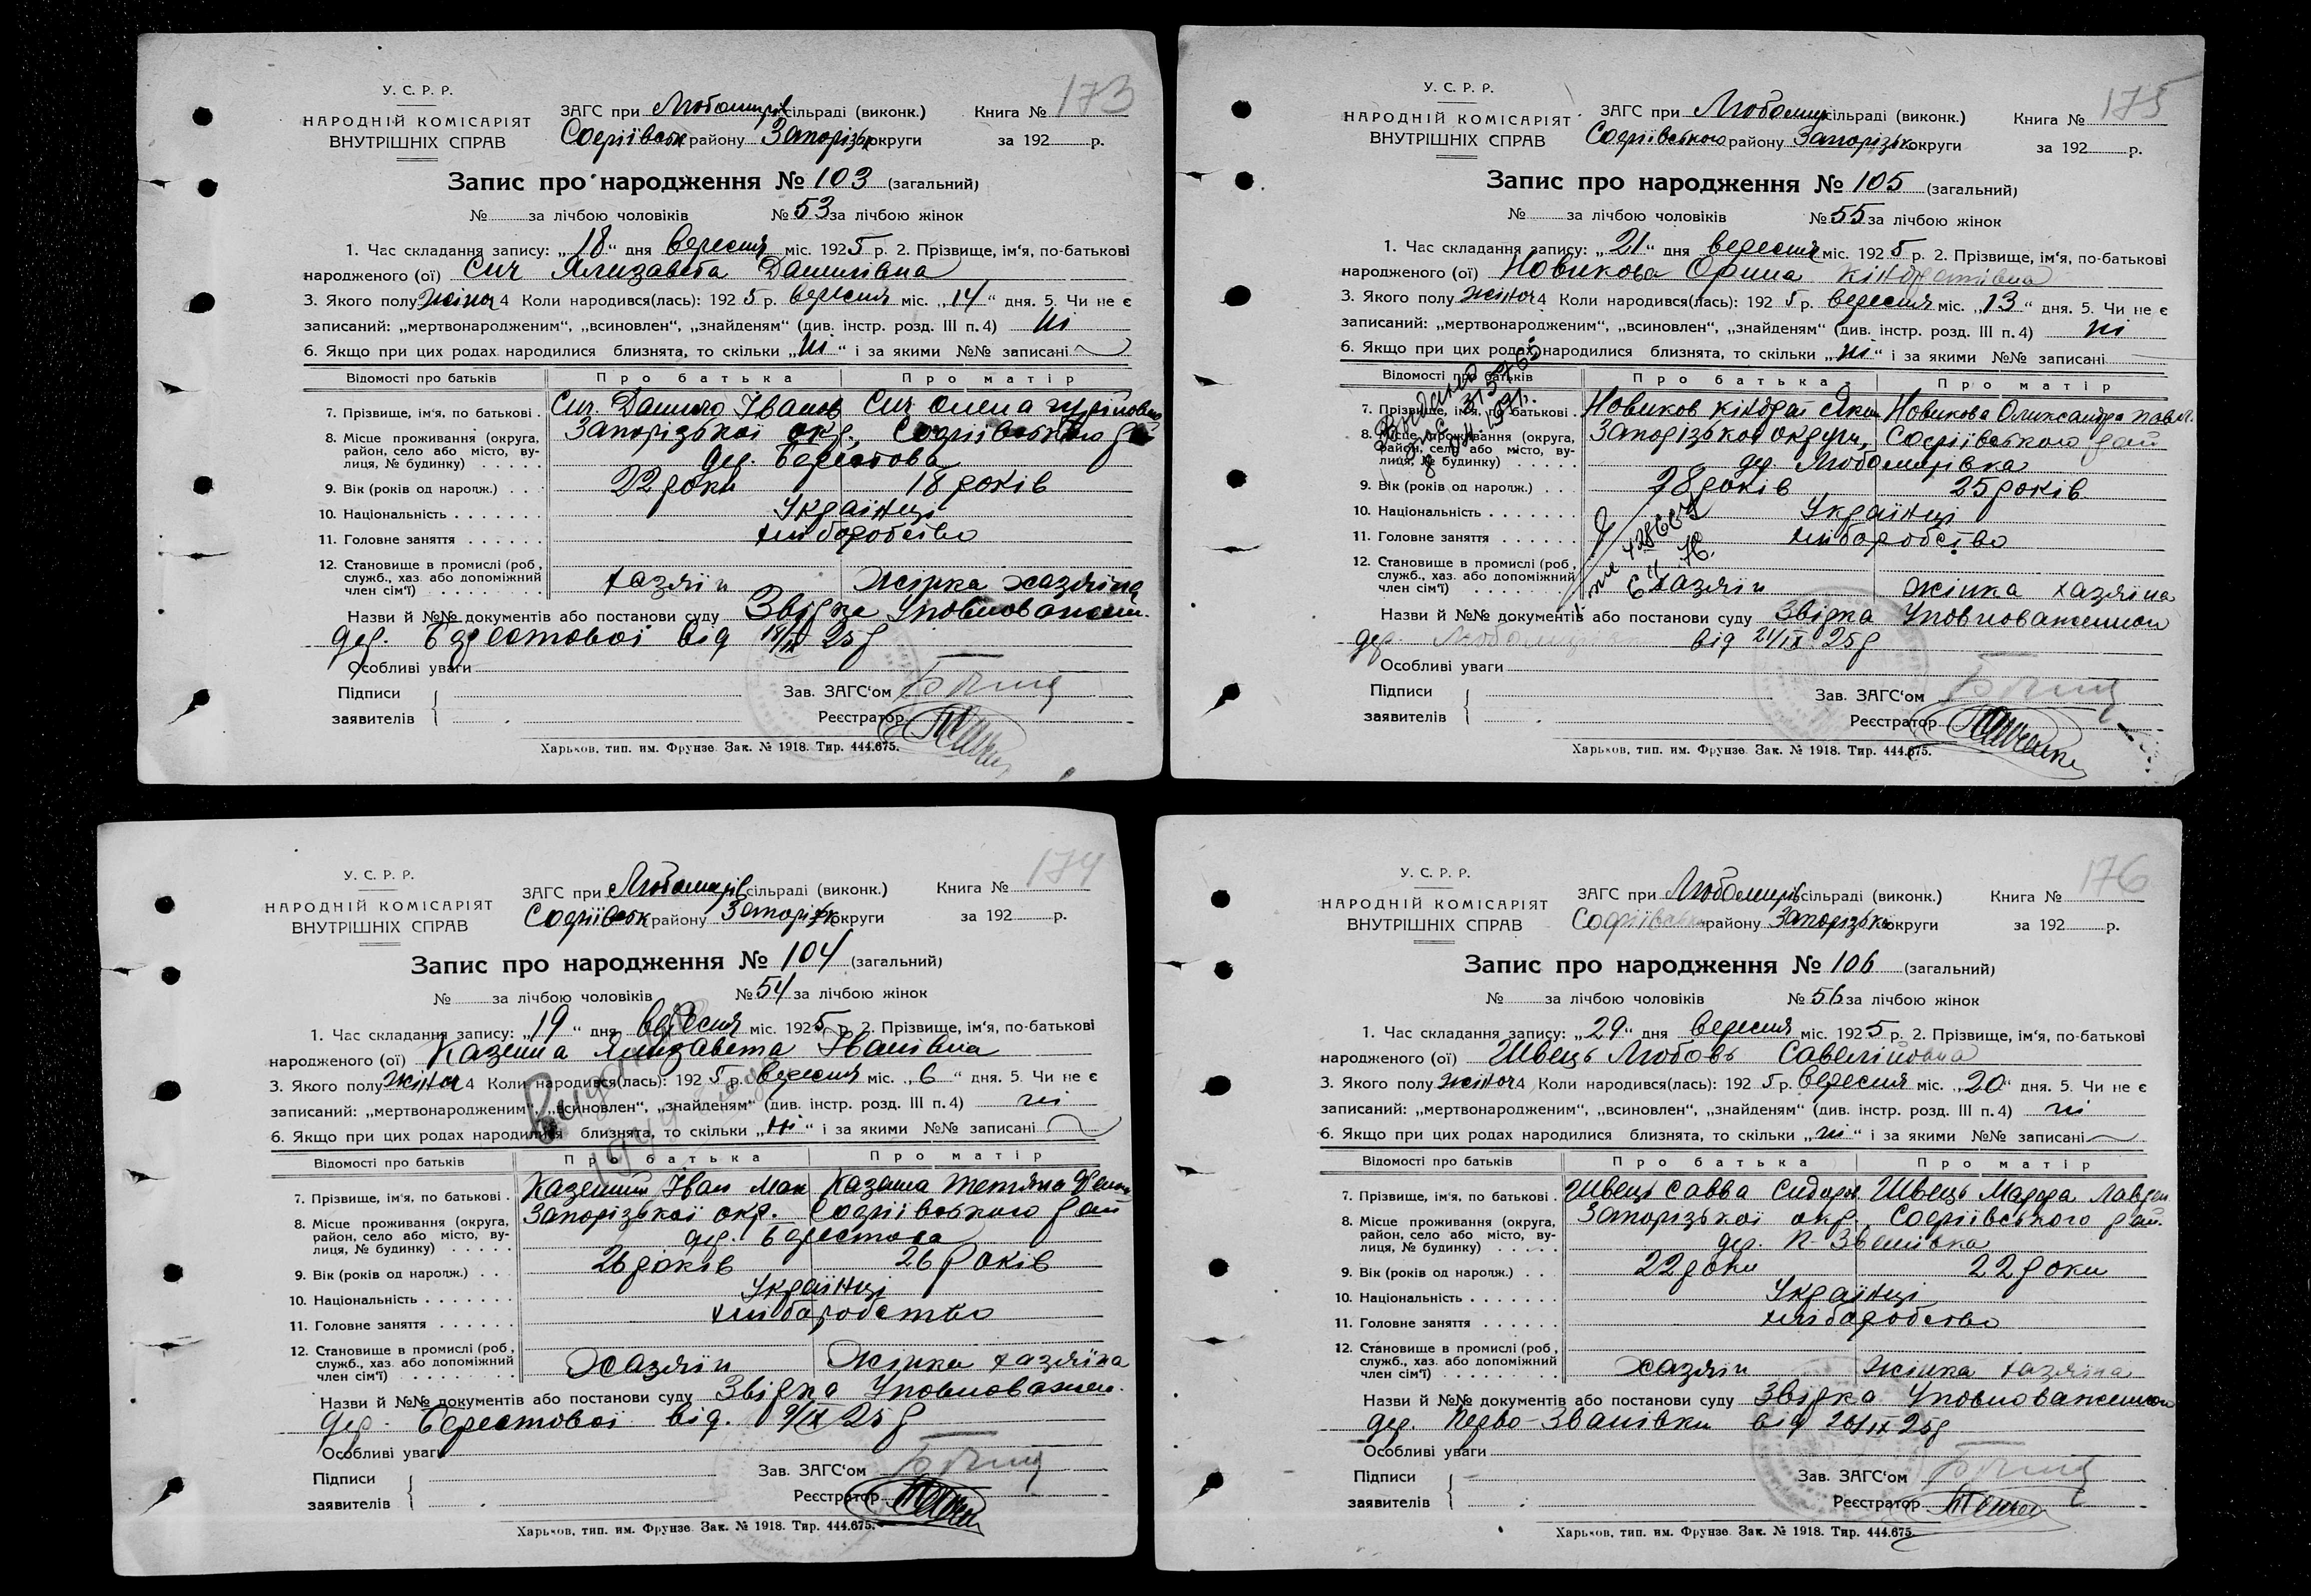 173
У. С. Р. Р.
НАРОДНІЙ КОМІСАРІЯТ
ВНУТРІШНІХ СПРАВ
ЗАГС при Любомирів сільраді (виконк.) Книга №
Софіївськ району Запорізьк округи за 192 р.
Запис про народження № 103 (загальний)
№ за лічбою чоловіків № 53 за лічбою жінок
1. Час складання запису: „18“ дня вересня міс. 1925 р. 2. Прізвище, ім‘я, по-батькові
народженого (ої) Сич Ялизавета Данилівна
3. Якого полу жіноч 4 Коли народився(лась): 192 5 р. вересня міс. „14“ дня. 5. Чи не є
записаний: „мертвонародженим“, „всиновлен“, „знайденям“ (див. інстр. розд. III п. 4) ні
6. Якщо при цих родах народилися близнята, то скільки „ні“ і за якими №№ записані
Відомості про батьків Про батька Про матір
7. Прізвище, ім‘я, по батькові . Сич Данило Іванов Сич Олена
8. Місце проживання (округа, район, село або місто, вулиця, № будинку) Запорізької окр. Софіївського рай
дер. Берестова
9. Вік (років од народж.) 22 роки 18 років
10. Національність Українці
11. Головне заняття хліборобство
12. Становище в промислі (роб., служб., хаз. або допоміжний член сім‘ї) хазяїн жінка хазяїна
Назви й №№ документів або постанови суду Звірка Уповноважен.
дер. Берестової від 14/IX 25 р
Особливі уваги
Підписи заявителів
Зав. ЗАГС‘ом
Реєстратор
Харьков, тип. им. Фрунзе. Зак. № 1918. Тир. 444.675.
175
У. С. Р. Р.
НАРОДНІЙ КОМІСАРІЯТ
ВНУТРІШНІХ СПРАВ
ЗАГС при Любомир сільраді (виконк.) Книга №
Софіївського району Запорізьк округи за 192 р.
Запис про народження № 105 (загальний)
№ за лічбою чоловіків № 55 за лічбою жінок
1. Час складання запису: „21“ дня вересня міс. 1925 р. 2. Прізвище, ім‘я, по-батькові
народженого (ої) Новикова Орина Кіндратівна
3. Якого полу жіноч 4 Коли народився(лась): 192 5 р. вересня міс. „13“ дня. 5. Чи не є
записаний: „мертвонародженим“, „всиновлен“, „знайденям“ (див. інстр. розд. III п. 4) ні
6. Якщо при цих родах народилися близнята, то скільки „ні“ і за якими №№ записані
Відомості про батьків Про батька Про матір
7. Прізвище, ім‘я, по батькові . Новиков Кіндрат Яким Новикова Олександра Павл.
8. Місце проживання (округа, район, село або місто, вулиця, № будинку) Запорізької округи, Софіївського рай.
дер. Любомирівка
9. Вік (років од народж.) 28 років 25 років
10. Національність Українці
11. Головне заняття хліборобство
12. Становище в промислі (роб., служб., хаз. або допоміжний член сім‘ї) хазяїн жінка хазяїна
Назви й №№ документів або постанови суду Звірка Уповноваженого
дер. Любомирівки від 21/IX 25 р
Особливі уваги
Підписи заявителів
Зав. ЗАГС‘ом
Реєстратор
Харьков, тип. им. Фрунзе. Зак. № 1918. Тир. 444.675.
174
У. С. Р. Р.
НАРОДНІЙ КОМІСАРІЯТ
ВНУТРІШНІХ СПРАВ
ЗАГС при Любомирів сільраді (виконк.) Книга №
Софіївськ району Запорізьк округи за 192 р.
Запис про народження № 104 (загальний)
№ за лічбою чоловіків № 54 за лічбою жінок
1. Час складання запису: „19“ дня вересня міс. 1925 р. 2. Прізвище, ім‘я, по-батькові
народженого (ої) Казенна Ялизавета Іванівна
3. Якого полу жіноч 4 Коли народився(лась): 192 5 р. вересня міс. „6“ дня. 5. Чи не є
записаний: „мертвонародженим“, „всиновлен“, „знайденям“ (див. інстр. розд. III п. 4) ні
6. Якщо при цих родах народилися близнята, то скільки „ні“ і за якими №№ записані
Відомості про батьків Про батька Про матір
7. Прізвище, ім‘я, по батькові . Казенний Іван Мак Казенна Тетяна
8. Місце проживання (округа, район, село або місто, вулиця, № будинку) Запорізької окр. Софіївського рай
дер. Берестова
9. Вік (років од народж.) 26 років 26 років
10. Національність Українці
11. Головне заняття хліборобство
12. Становище в промислі (роб., служб., хаз. або допоміжний член сім‘ї) хазяїн жінка хазяїна
Назви й №№ документів або постанови суду Звірка Уповноважен.
дер. Берестової від. 9/IX 25 р
Особливі уваги
Підписи заявителів
Зав. ЗАГС‘ом
Реєстратор
Харьков, тип. им. Фрунзе. Зак. № 1918. Тир. 444.675.
176
У. С. Р. Р.
НАРОДНІЙ КОМІСАРІЯТ
ВНУТРІШНІХ СПРАВ
ЗАГС при Любомирів сільраді (виконк.) Книга №
Софіївськ району Запорізьк округи за 192 р.
Запис про народження № 106 (загальний)
№ за лічбою чоловіків № 56 за лічбою жінок
1. Час складання запису: „29“ дня вересня міс. 1925 р. 2. Прізвище, ім‘я, по-батькові
народженого (ої) Швець Любовь Савеліївна
3. Якого полу жіноч 4 Коли народився(лась): 192 5 р. вересня міс. „20“ дня. 5. Чи не є
записаний: „мертвонародженим“, „всиновлен“, „знайденям“ (див. інстр. розд. III п. 4) ні
6. Якщо при цих родах народилися близнята, то скільки „ні“ і за якими №№ записані
Відомості про батьків Про батька Про матір
7. Прізвище, ім‘я, по батькові . Швець Савва Сидоров Швець Лаврен
8. Місце проживання (округа, район, село або місто, вулиця, № будинку) Запорізької окр. Софіївського рай.
дер. П-Званівка
9. Вік (років од народж.) 22 роки 22 роки
10. Національність Українці
11. Головне заняття хліборобство
12. Становище в промислі (роб., служб., хаз. або допоміжний член сім‘ї) хазяїн жінка хазяїна
Назви й №№ документів або постанови суду Звірка Уповноваженого
дер. Перво-Званівки від 26/IX 25 р
Особливі уваги
Підписи заявителів
Зав. ЗАГС‘ом
Реєстратор
Харьков, тип. им. Фрунзе. Зак. № 1918. Тир. 444.675.